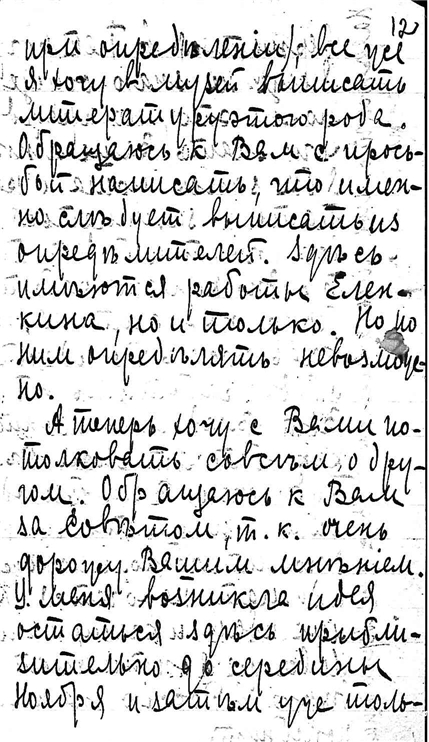 12
при опредѣленіи), все же
я хочу в музей выписать
литературу этого рода.
Обращаюсь к Вам с прось-
бой написать, что имен-
но слѣдует выписать из
опредѣлителей. Здѣсь
имѣются работы Елен-
кина, но и только. Но по
ним опредѣлять невозмож-
но.
А теперь хочу с Вами по-
толковать совсѣм о дру-
гом. Обращаюсь к Вам
за совѣтом, т. к. очень
дорожу Вашим мнѣніем.
У меня возникла идея
остаться здѣсь прибли-
зительно до середины
Ноября и затѣм уже толь-